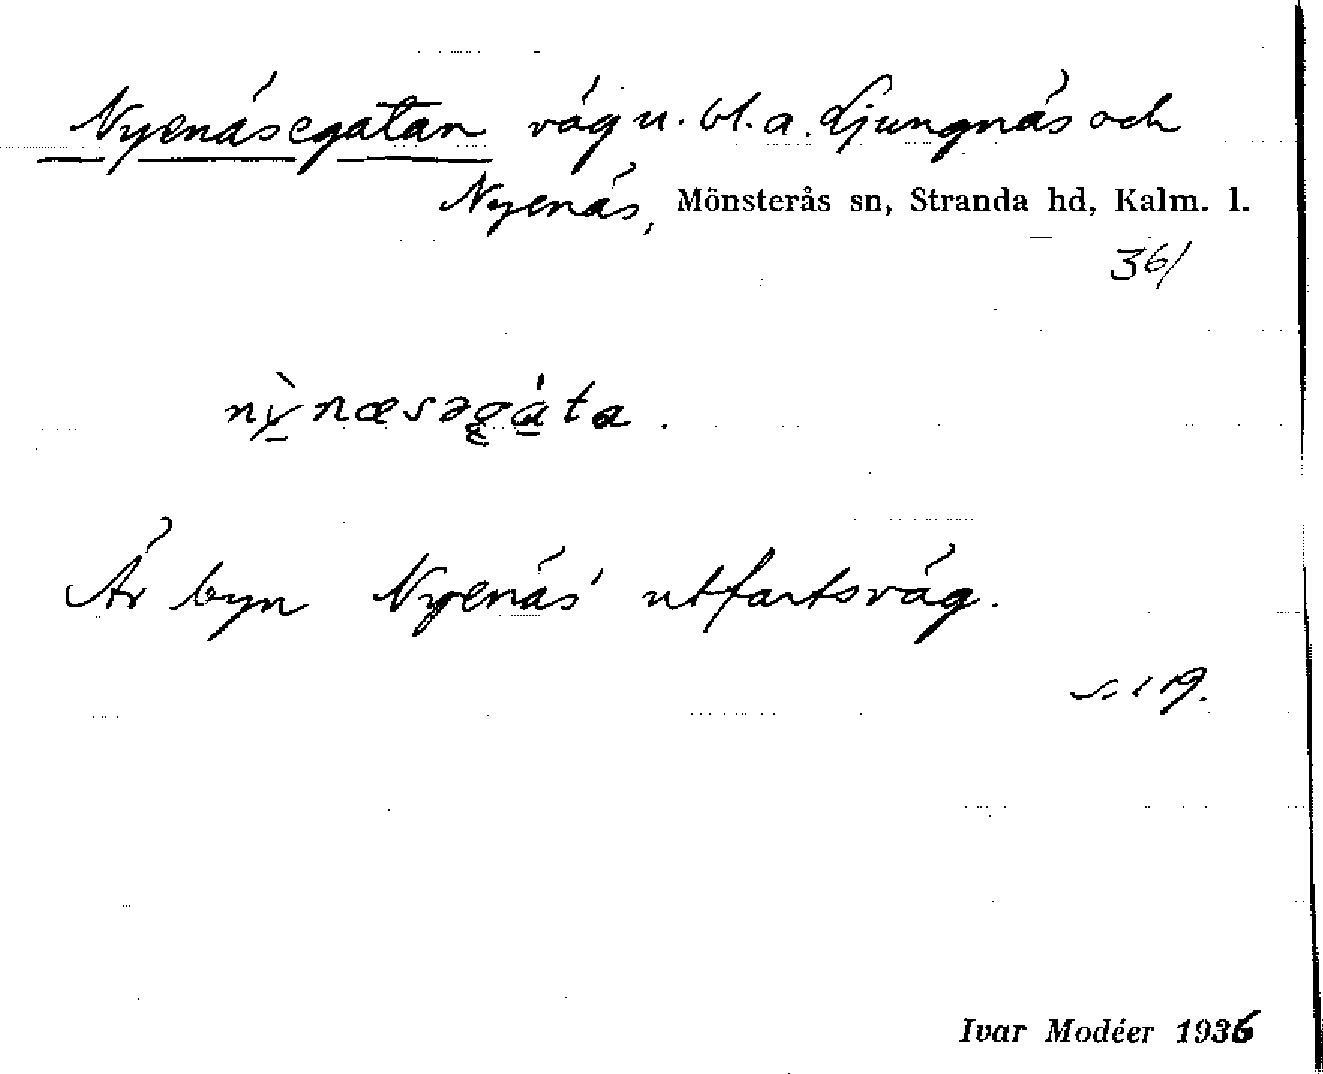 Nyenäsegatan väg u. bl. a. Ljungnäs och
Nyenäs, Mönsterås sn, Stranda hd, Kalm. l.
361
nỳnæsəgáta.
Är byn Nyenäs' utfartsväg.
s. 19.
Ivar Modéer 1936